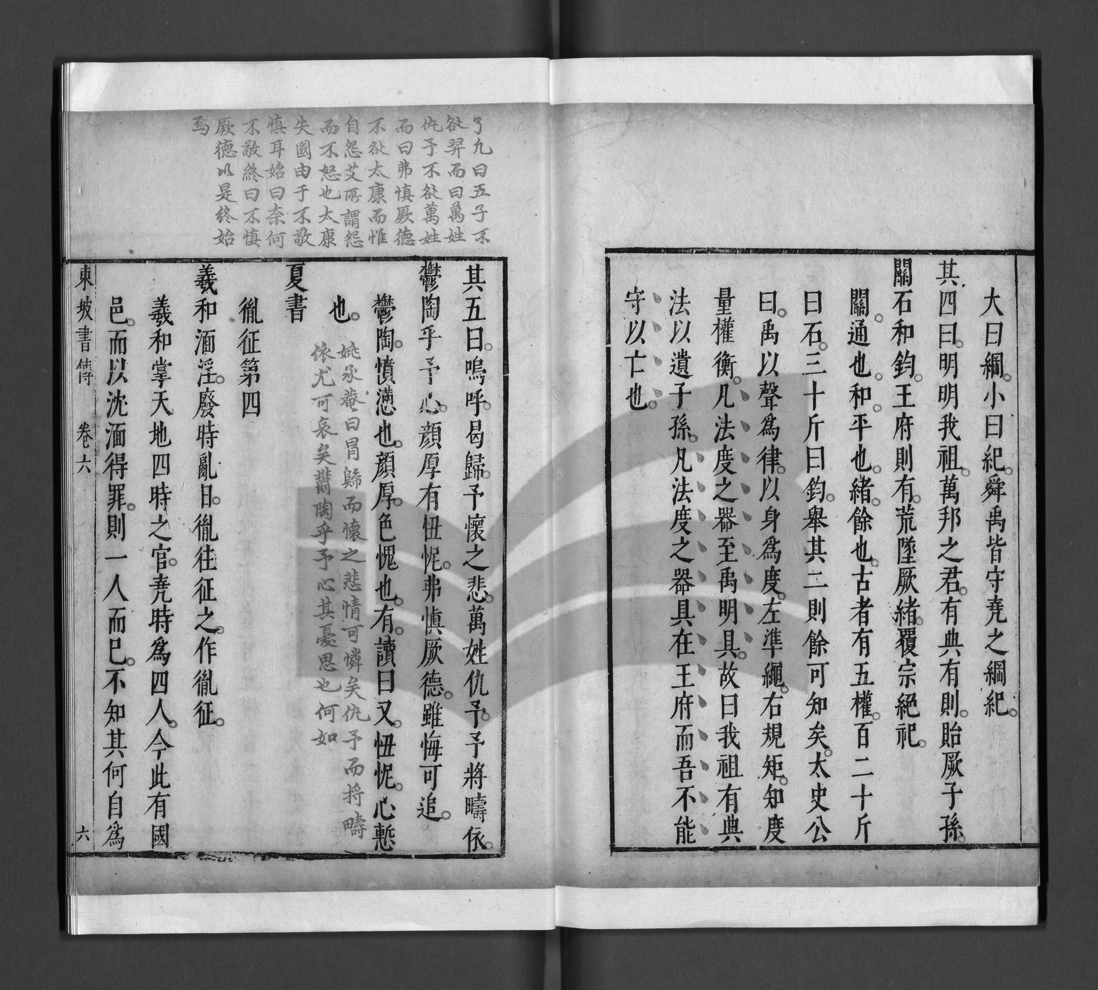 大曰綱。小曰紀。舜禹皆守堯之綱紀。
其四曰。明明我祖。萬邦之君。有典有則。貽厥子孫。
關石和鈞。王府則有。荒墜厥緒。覆宗絕祀。
關。通也。和。平也。緒。餘也。古者有五權。百二十斤
曰石。三十斤曰鈞。舉其二則餘可知矣。太史公
曰。禹以聲爲律。以身爲度。左準繩。右規矩。知度
量權衡。凡法度之器至禹明具。故曰我祖有典
法以遺子孫。凡法度之器具在王府而吾不能
守以亡也。
了凡曰五子不
怨羿而曰萬姓
仇予不怨萬姓
而曰弗慎厥德
不怨太康而惟
自怨艾所謂怨
而不怒也太康
失國由于不敬
慎耳始曰奈何
不敬終曰不慎
厥德以是終始
焉
其五曰。嗚呼。曷歸。予懷之悲。萬姓仇予。予將疇依。
鬱陶乎予心。顏厚有忸怩。弗慎厥德。雖悔可追。
鬱陶。憤懣也。顏厚。色愧也。有。讀曰又。忸怩。心慙
也。
姚承菴曰曷歸而懷之悲情可憐矣仇予而將疇
依尤可哀矣鬱陶乎予心其憂思也何如
夏書
胤征第四
羲和湎淫。廢時亂日。胤往征之。作胤征。
羲和掌天地四時之官。堯時爲四人。今此有國
邑。而以沈湎得罪。則一人而已。不知其何自爲
東坡書傳 卷六 六